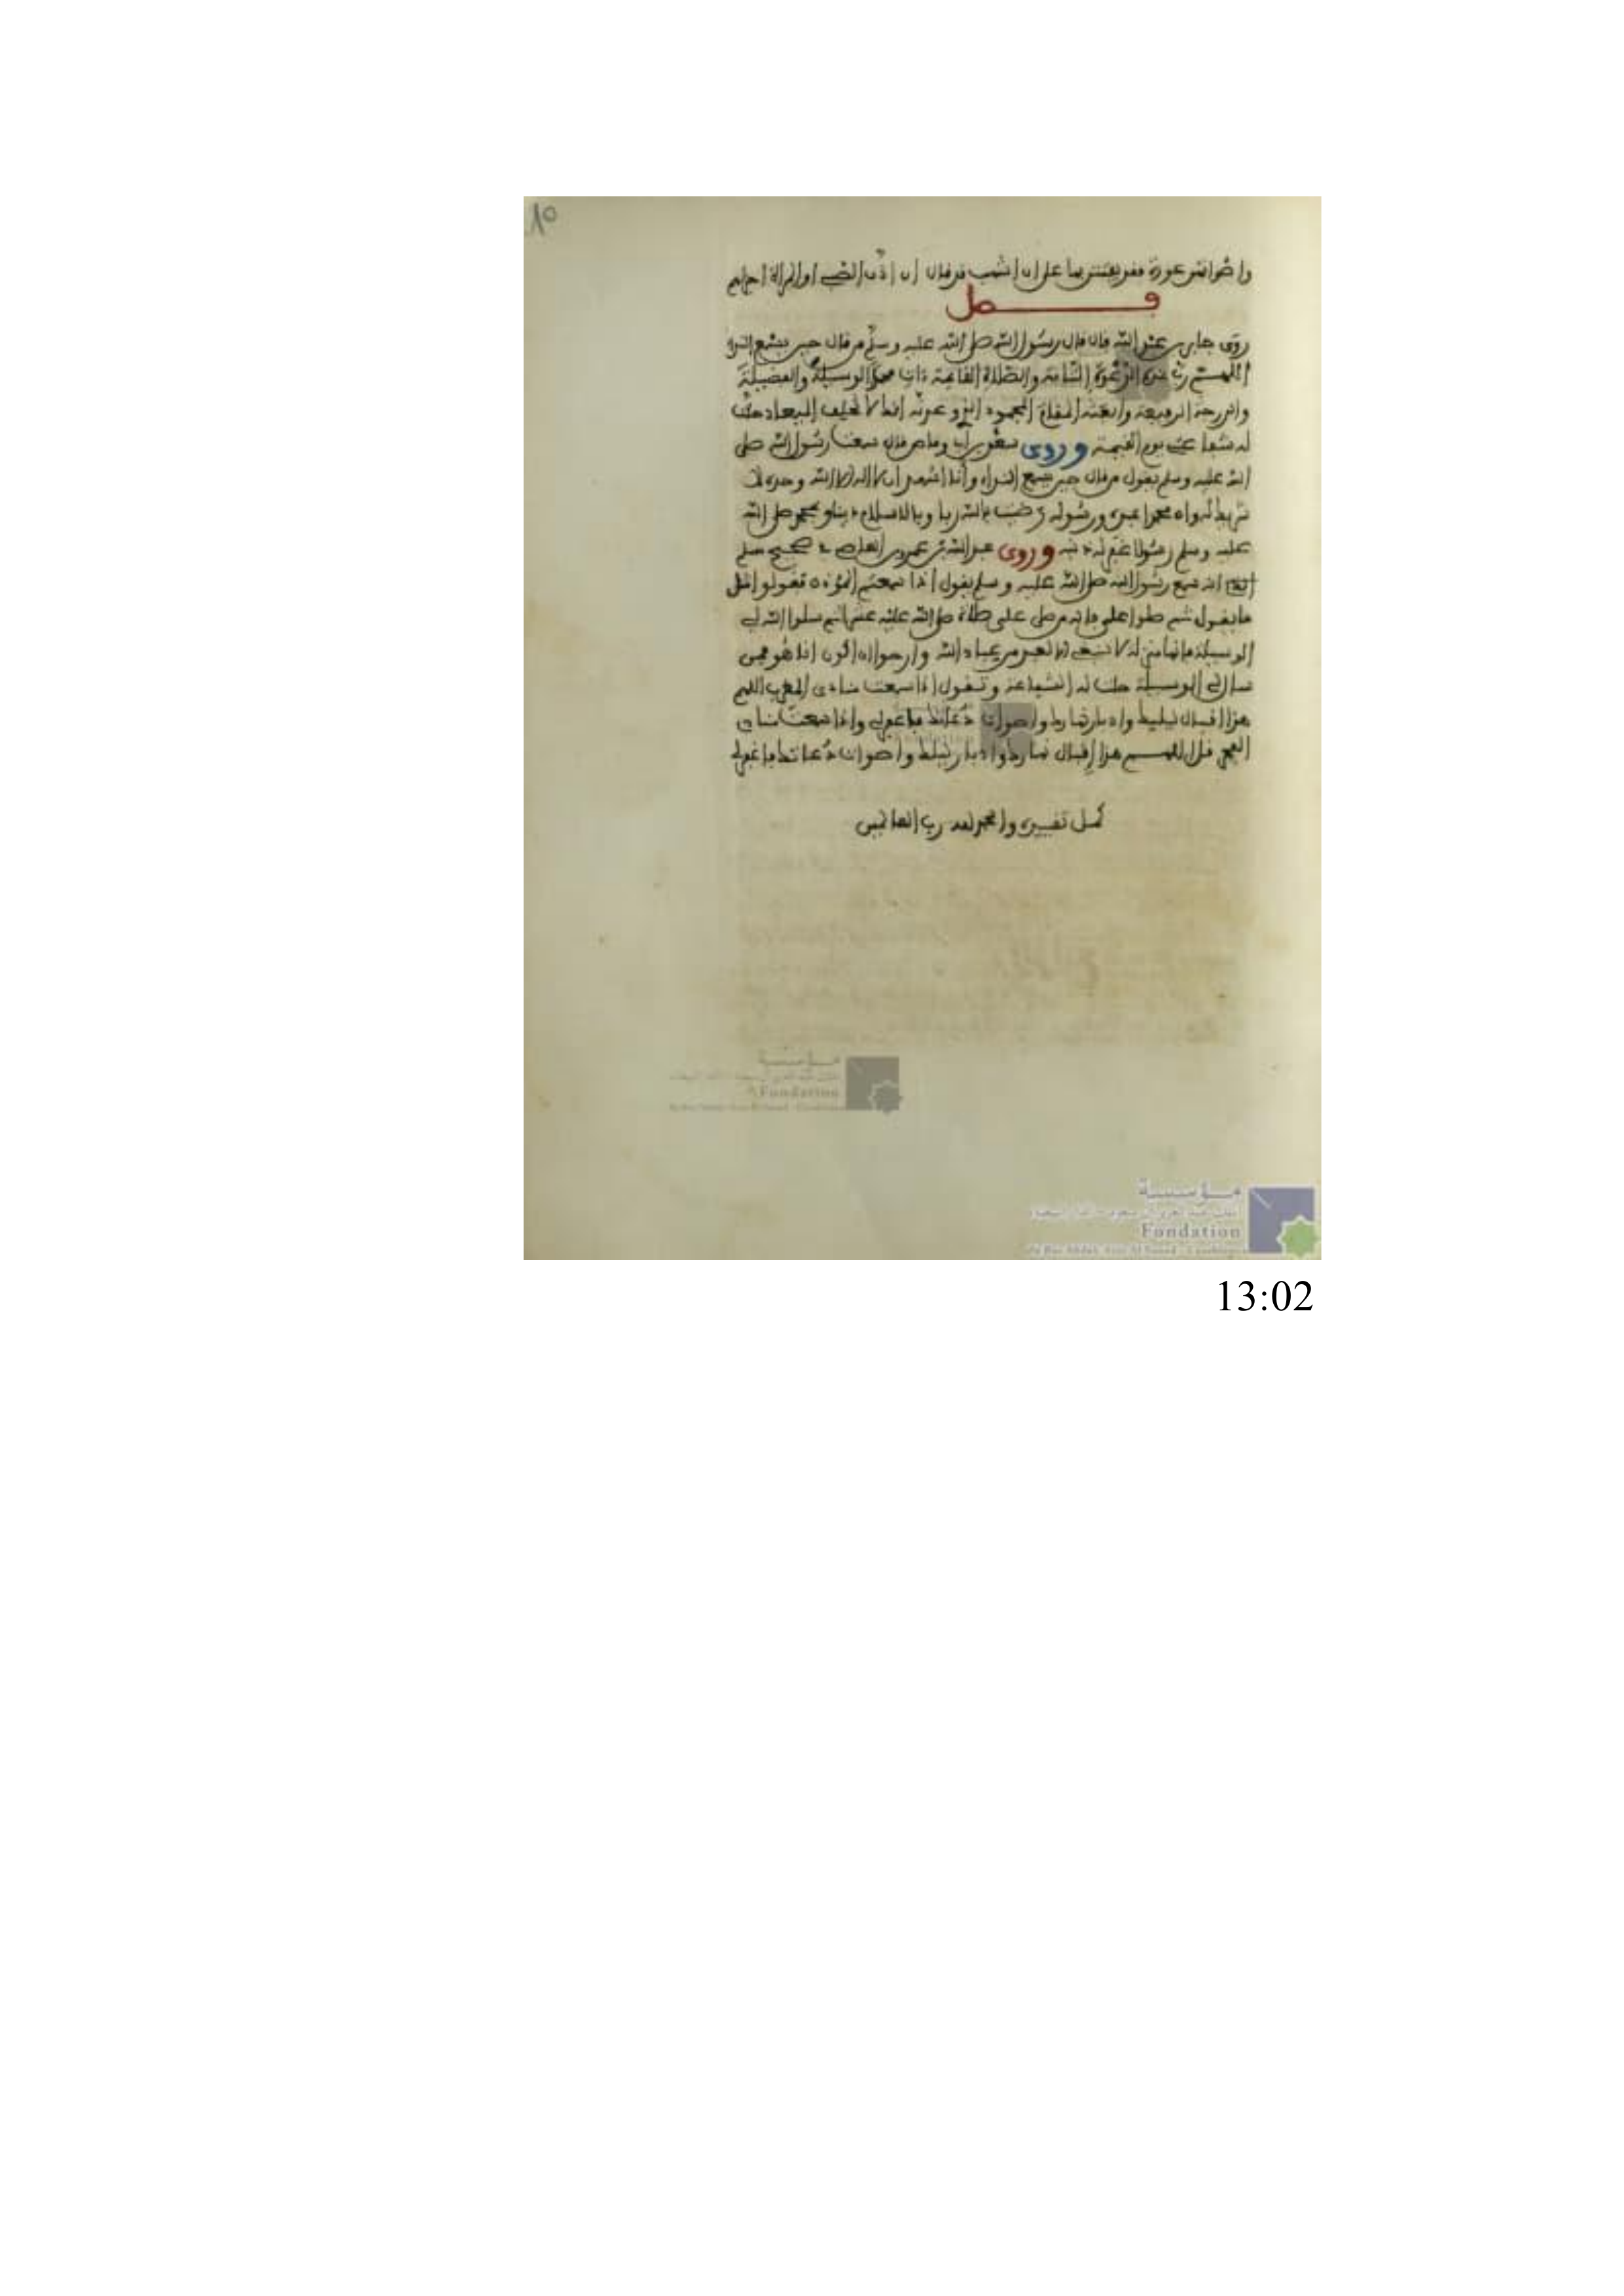 واصواتهن عورة فقد يفتتن بها على ان اشهب قد قال ان اذن الصبي او المراة اجزاهم
فصل
روى جابر بن عبد الله قال قال رسول الله صلى الله عليه وسلم من قال حين يسمع الندا
اللهم رب هذه الدعوة التامة والصلاة القائمة ءات محمدا الوسيلة والفضيلة
والدرجة الرفيعة وابعثه المقام المحمود الذي وعدته انك لا تخلف الميعاد حلت
له شفاعتي يوم القيمة وروى سعد بن ابي وقاص قال سمعت رسول الله صلى
الله عليه وسلم يقول من قال حين يسمع النداء وأنا اشهد ان لا اله الا الله وحده لا
شريك له وان محمدا عبده ورسوله رضيت بالله ربا وبالاسلام دينا وبمحمد صلى الله
عليه وسلم رسولا غفر له ذنبه وروى عبد الله بن عمرو بن العاص في صحيح مسلم
انه سمع رسول الله صلى الله عليه وسلم يقول اذا سمعتم المؤذن فقولوا مثل
ما يقول ثم صلوا علي فانه من صلى علي صلاة صلى الله عليه عشرا ثم سلوا الله لي
الوسيلة فانها منزلة لا تنبغي الا لعبد من عباد الله وارجوا ان اكون انا هو فمن
سال لي الوسيلة حلت له الشفاعة وتقول اذا سمعت منادي المغرب اللهم
هذا اقبال ليلك وادبار نهارك واصوات دعاتك فاغفر لي واذا سمعت منادي
الفجر قل اللهم هذا إقبال نهارك وادبار ليلك واصوات دعاتك فاغفر لي
كمل تفسيره والحمد لله رب العالمين
مؤسسة
Fondation
مؤسسة
Fondation
13:02